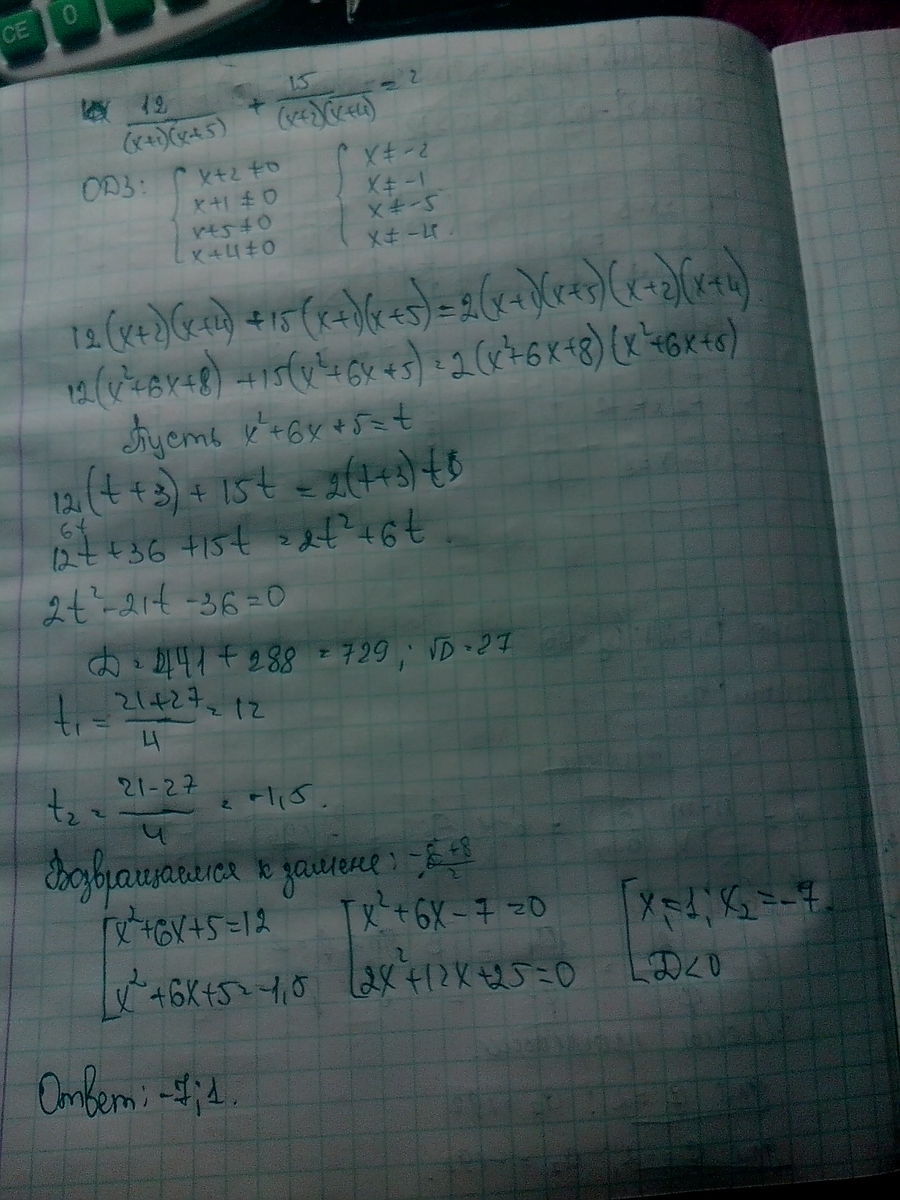 CE 0
12/((x+1)(x+5)) + 15/((x+2)(x+4)) = 2
ОДЗ: { x+2≠0 { x≠-2
x+1≠0 x≠-1
x+5≠0 x≠-5
x+4≠0 x≠-4.
12(x+2)(x+4)+15(x+1)(x+5)=2(x+1)(x+5)(x+2)(x+4)
12(x²+6x+8)+15(x²+6x+5)=2(x²+6x+8)(x²+6x+5)
Пусть x²+6x+5=t
12(t+3)+15t=2(t+3)t
6t
12t+36+15t=2t²+6t.
2t²-21t-36=0
D=441+288=729; √D=27
t₁=(21+27)/4=12
t₂=(21-27)/4=-1,5.
Возвращаемся к замене:
[ x²+6x+5=12 [ x²+6x-7=0 [ x₁=1; x₂=-7.
x²+6x+5=-1,5 2x²+12x+25=0 D<0
Ответ: -7; 1.